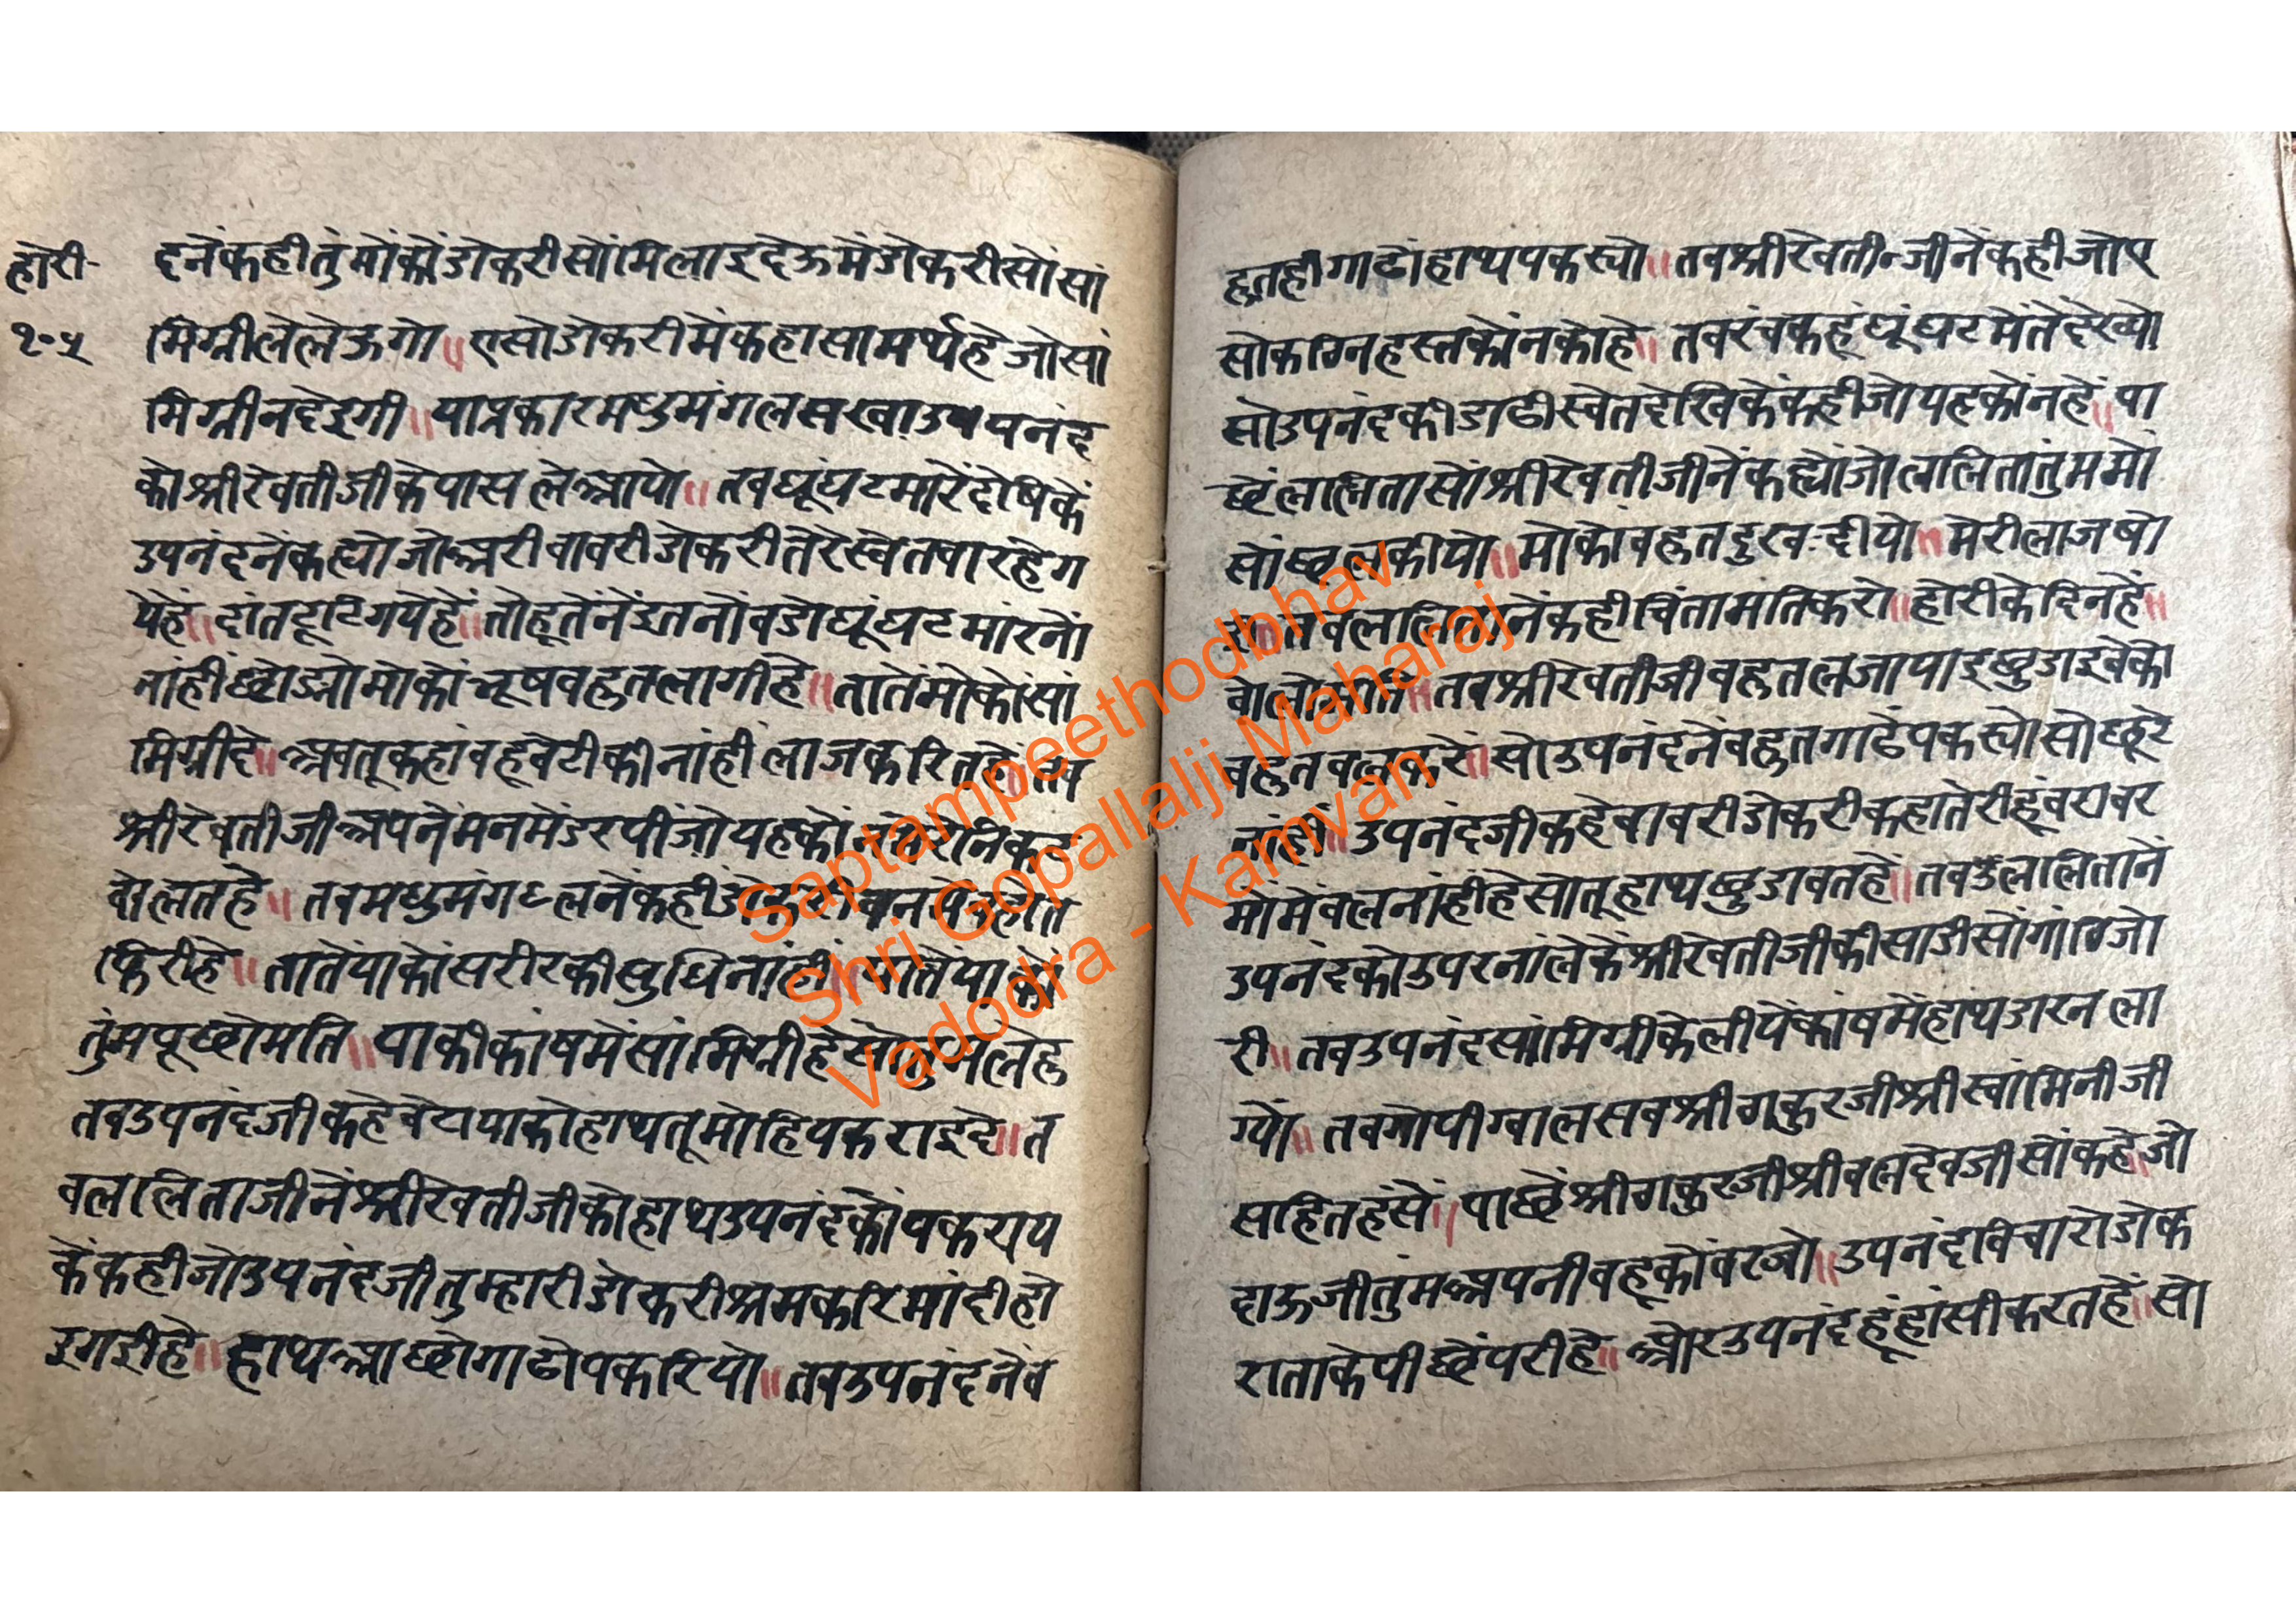 होरी
१०५
दनेंकहीतुंमोंकोंडोकरीसोंमिलाइदेऊमेंडोकरीसोंसां
मिग्रीलेलेऊगो॥एसोडोकरीमेंकहासामर्थहेजोसां
मिग्रीनदेइगी॥याप्रकारमधुमंगलसखाउपनंद
कोश्रीरेवतीजीकेपासलेआयो॥तबघूंघटमारेंदेषिकें
उपनंदनेंकह्योजोअरीबावरीडोकरीतेरेस्वेतबारहेग
येहें॥दांतटूटिगयेहें॥तोहूतेंनेंइतनोंबडोघूंघटमांरनों
नांहींछोड्योमोकोंभूषबहुतलागीहे॥तातेंमोकोंसां
मिग्रीदे॥अबतूकहांबहूबेटीकीनांहींलाजकरितहे॥तब
श्रीरेवतीजीअपनेमनमेंडरपींजोयहकों
बोलतहे॥तबमधुमंगलनेंकही
फिरीहे॥तातेंयाकोंसरीरकीसुधिनांहीं॥तातेंयाकों
तुंमपूछोमति॥याकीकांषमेंसांमिग्रीहे
तबउपनंदजीकहेबेटायाकोहाथतूमोहिपकराइदे॥त
बललिताजीनेंश्रीरेवतीजीकोहाथउपनंदकोंपकराय
केंकहीजोउपनंदजीतुम्हारीडोकरीश्रमकरिमांदीहो
इगईहे॥हाथआछोगाढोपकरियो॥तबउपनंदनेंब
हुतहीगाढोंहाथपकरयो॥तबश्रीरेवतीजीनेंकहीजोए
सोकठिनहस्तकोंनकोहे॥तबरंचकहूंघूंघटमेंतेंदेख्यो
सोउपनंदकीडाढीस्वेतदेखिकेंकहीजोयहकोंनहें॥पा
छेंललितासोंश्रीरेवतीजीनेंकह्योंजोललितातुंममो
सोंछलकीयो॥मोकोंबहुतदुख दीयो॥मेरीलाजषो
ई॥तबललितानेंकहीचिंतामतिकरो॥होरीकेदिनहें॥
बोलोमति॥तबश्रीरेवतीजीबहुतलजापाइछुडाइवेको
बहुतबलकरें॥सोउपनंदनेंबहुतगाढेंपकरयोसोछूटे
नांहीं॥उपनंदजीकहेबावरीडोकरीकहातेरीहूंबराबर
मोमेंबलनांहीहेसोतूहाथछुडावतहे॥तबललितानें
उपनंदकोउपरनांलेकेंश्रीरेवतीजीकीसाडीसोंगांठिजो
री॥तबउपनंदसांमिग्रीकेलीयेंकांषमेंहाथडारनला
ग्यो॥तबगोपीग्वालसबश्रीठाकुरजीश्रीस्वांमिनीजी
सहितहंसे॥पाछेंश्रीठाकुरजीश्रीबलदेवजीसोंकहेजो
दाऊजीतुंमअपनीबहूकोंबरजो॥उपनंदबिचारोडोक
राताकेपीछेंपरीहे॥ओरउपनंदहूंहांसीकरतहें॥सो
Saptampeethodbhav
Shri Gopallalji Maharaj
Vadodra - Kamvan